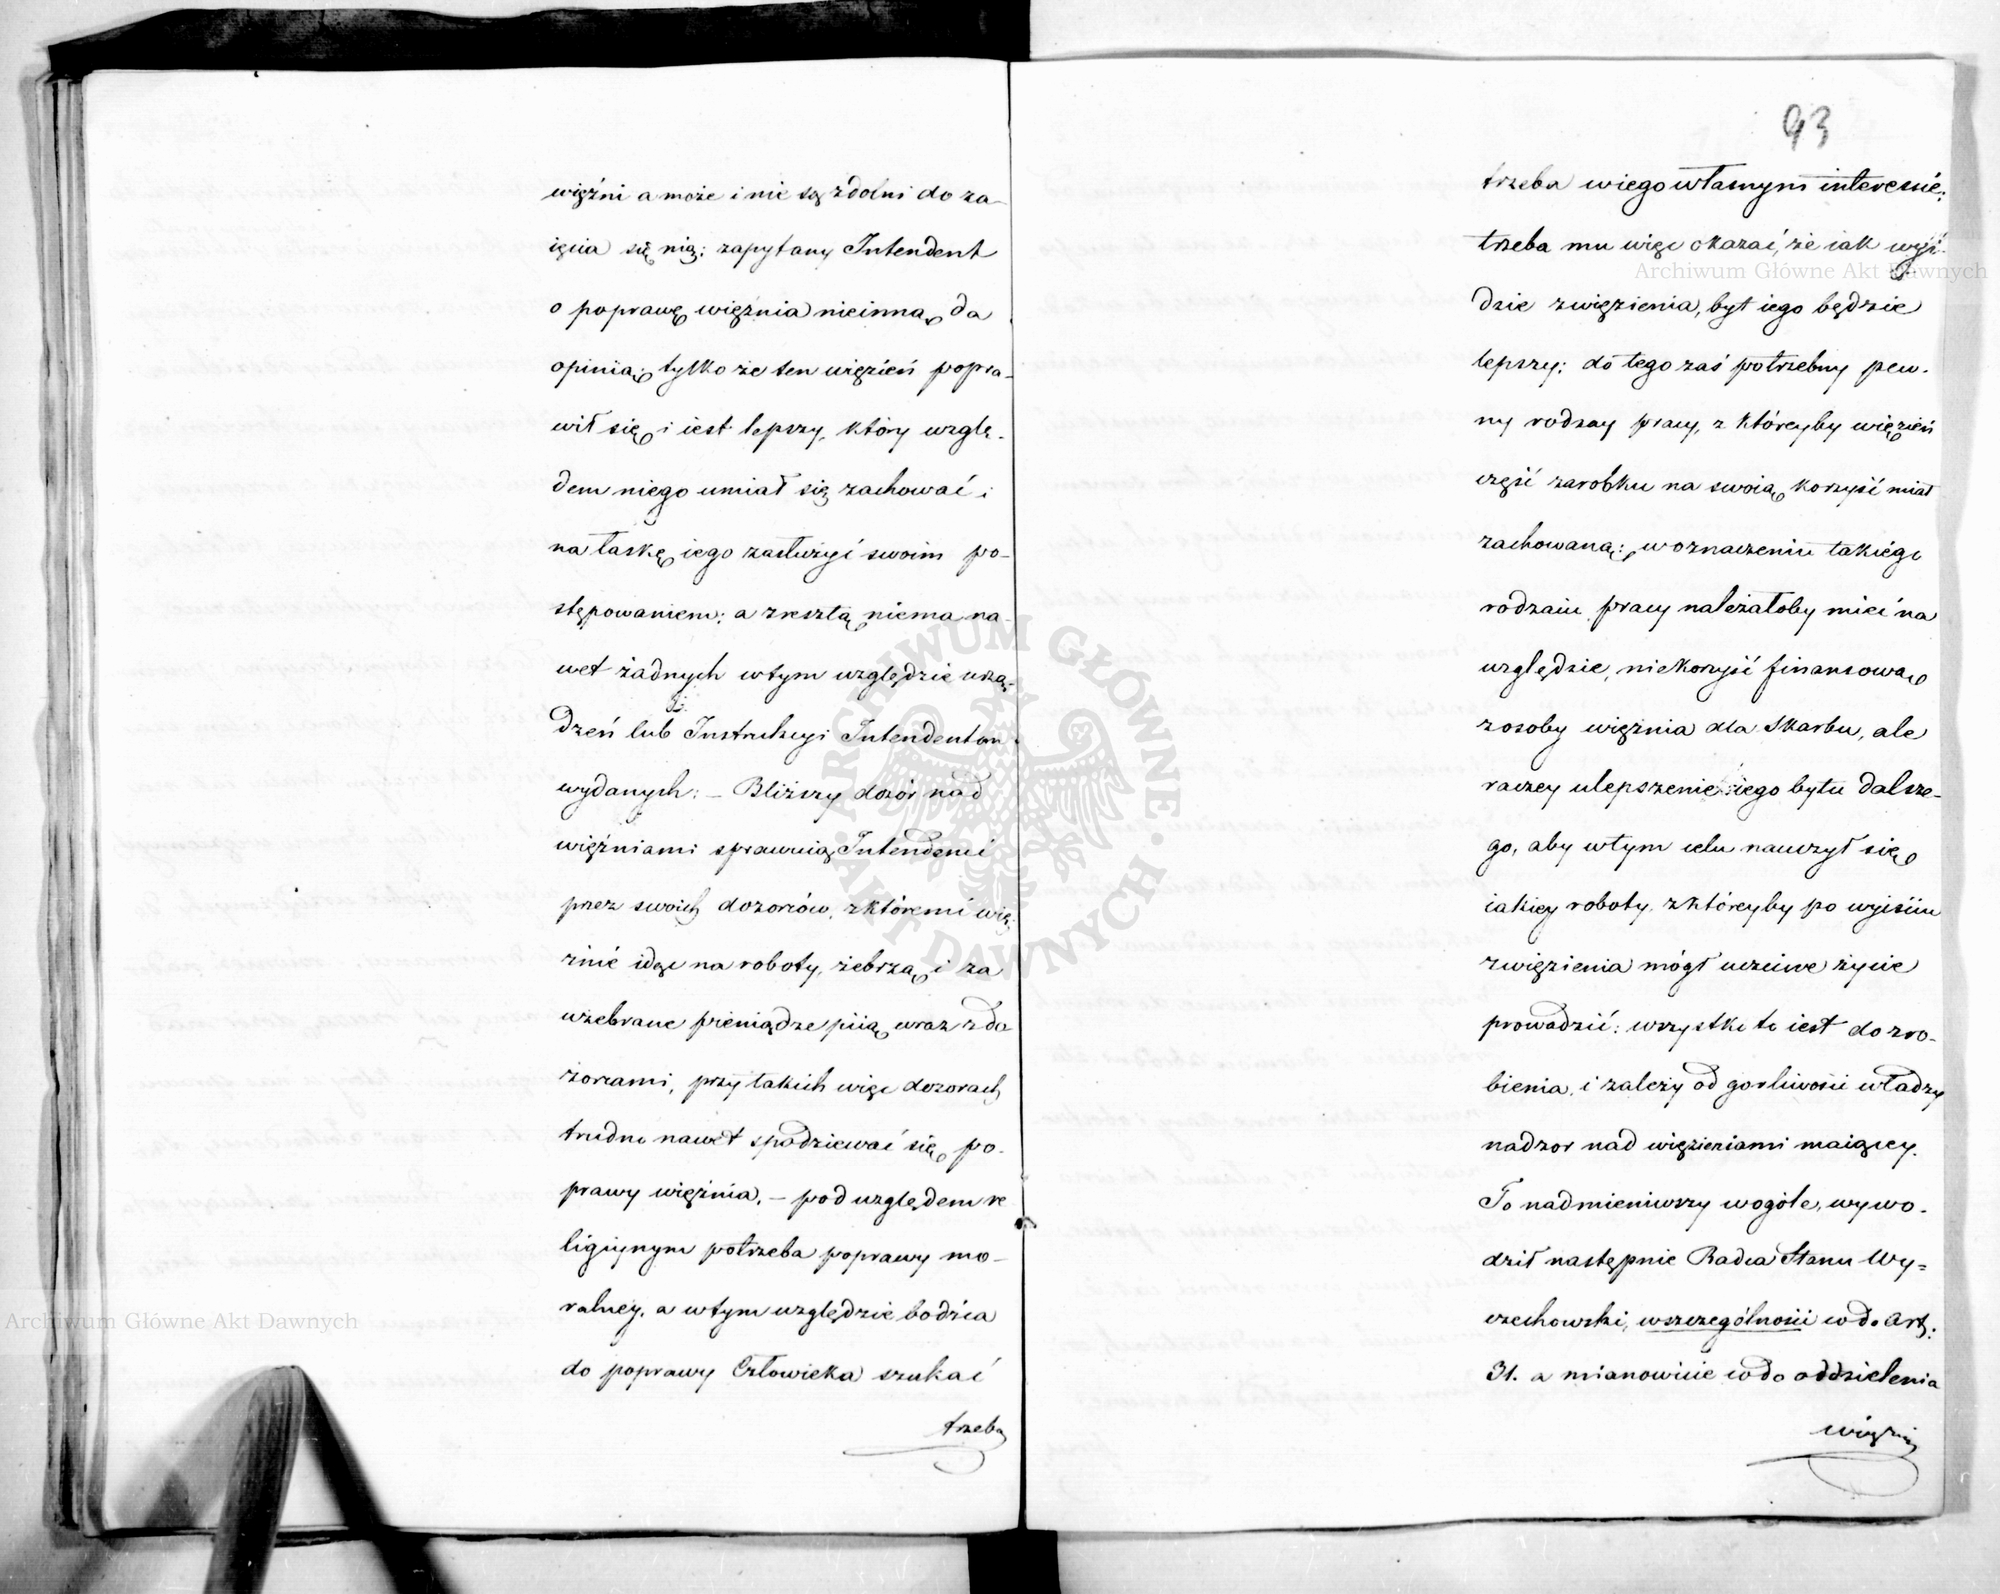 więźni a może i nie są zdolni do za-
ięcia się nią: zapytany Intendent
o poprawę więźnia nieinną da
opinią, tylko że ten więzień popra-
wił się i iest lepszy, który wzglę-
dem niego umiał się zachować i
na łaskę iego zasłużyć swoim po-
stępowaniem; a zresztą niema na-
wet żadnych wtym względzie urzą-
dzeń lub Instrukcyi Intendentom
wydanych: – Bliższy dozór nad
więźniami sprawuią Intendenci
przez swoich dozorców, zktóremi wię-
źnie idąc na roboty, żebrzą i za
użebrane pieniądze piią wraz zdo
zorcami, przy takich więc dozorach
trudno nawet spodziewać się po-
prawy więźnia. – pod względem re
ligiynym potrzeba poprawy mo-
ralney, a wtym względzie bodźca
do poprawy Człowieka szukać
trzeba
93
trzeba wiego własnym interesie:
trzeba mu więc okazać, że iak wyi-
dzie zwięzienia, byt iego będzie
lepszy: do tego zaś potrzebny pew-
ny rodzay pracy, z któreyby więzień
część zarobku na swoią korzyść miał
zachowaną: woznaczeniu takiego
rodzaiu pracy należałoby mieć na
względzie, niekorzyść finansową
zosoby więźnia dla Skarbu, ale
raczey ulepszenie iego bytu dalsze-
go, aby wtym celu nauczył się
iakiey roboty, zktóreyby po wyiściu
zwięzienia mógł uczciwe życie
prowadzić: wszystko to iest do zro-
bienia, i zależy od gorliwości władzy
nadzor nad więzieniami maiącey.
To nadmieniwszy wogóle, wywo-
dził następnie Radca Stanu Wy=
czechowski, wszczególności co do Art:
31. a mianowicie co do oddzielenia
więźni
Archiwum Główne Akt Dawnych
Archiwum Główne Akt Dawnych
ARCHIWUM GŁÓWNE · AKT DAWNYCH ·